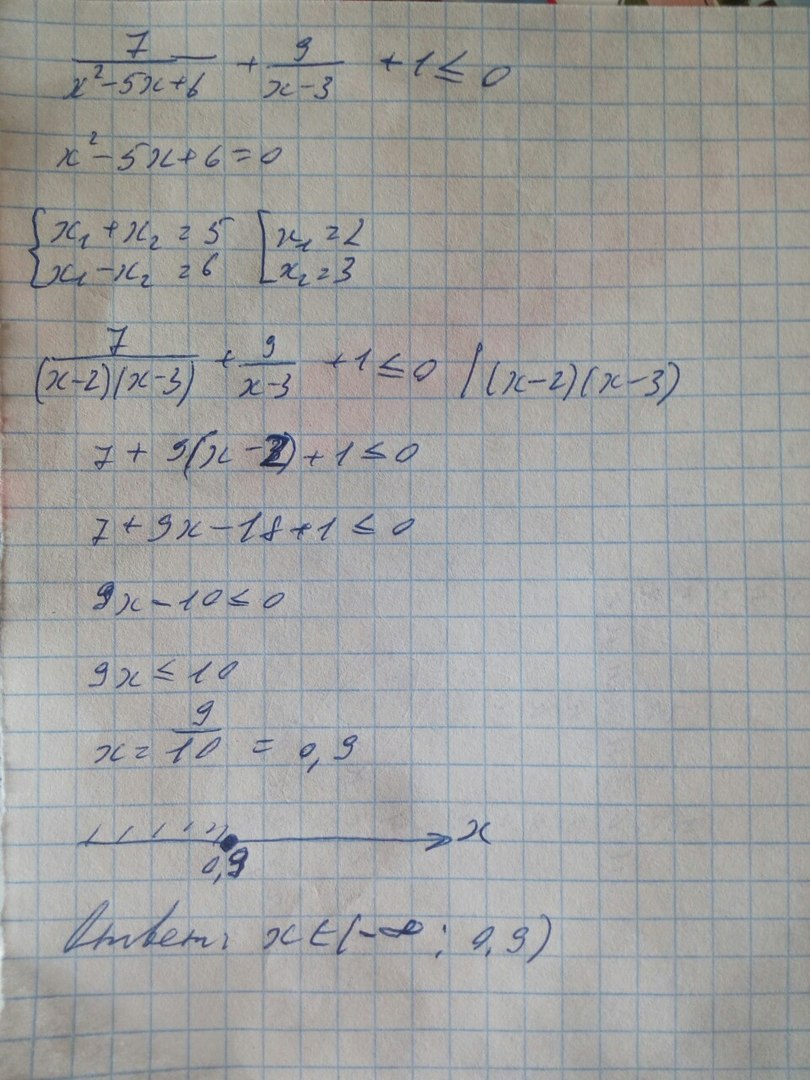 7/(x²-5x+6) + 9/(x-3) + 1 ≤ 0
x²-5x+6=0
{x₁+x₂=5 [x₁=2
{x₁-x₂=6 [x₂=3
7/((x-2)(x-3)) + 9/(x-3) + 1 ≤ 0 | (x-2)(x-3)
7 + 9(x-2) + 1 ≤ 0
7 + 9x - 18 + 1 ≤ 0
9x - 10 ≤ 0
9x ≤ 10
x = 9/10 = 0,9
x
0,9
Ответ: x ∈ (-∞; 0,9)